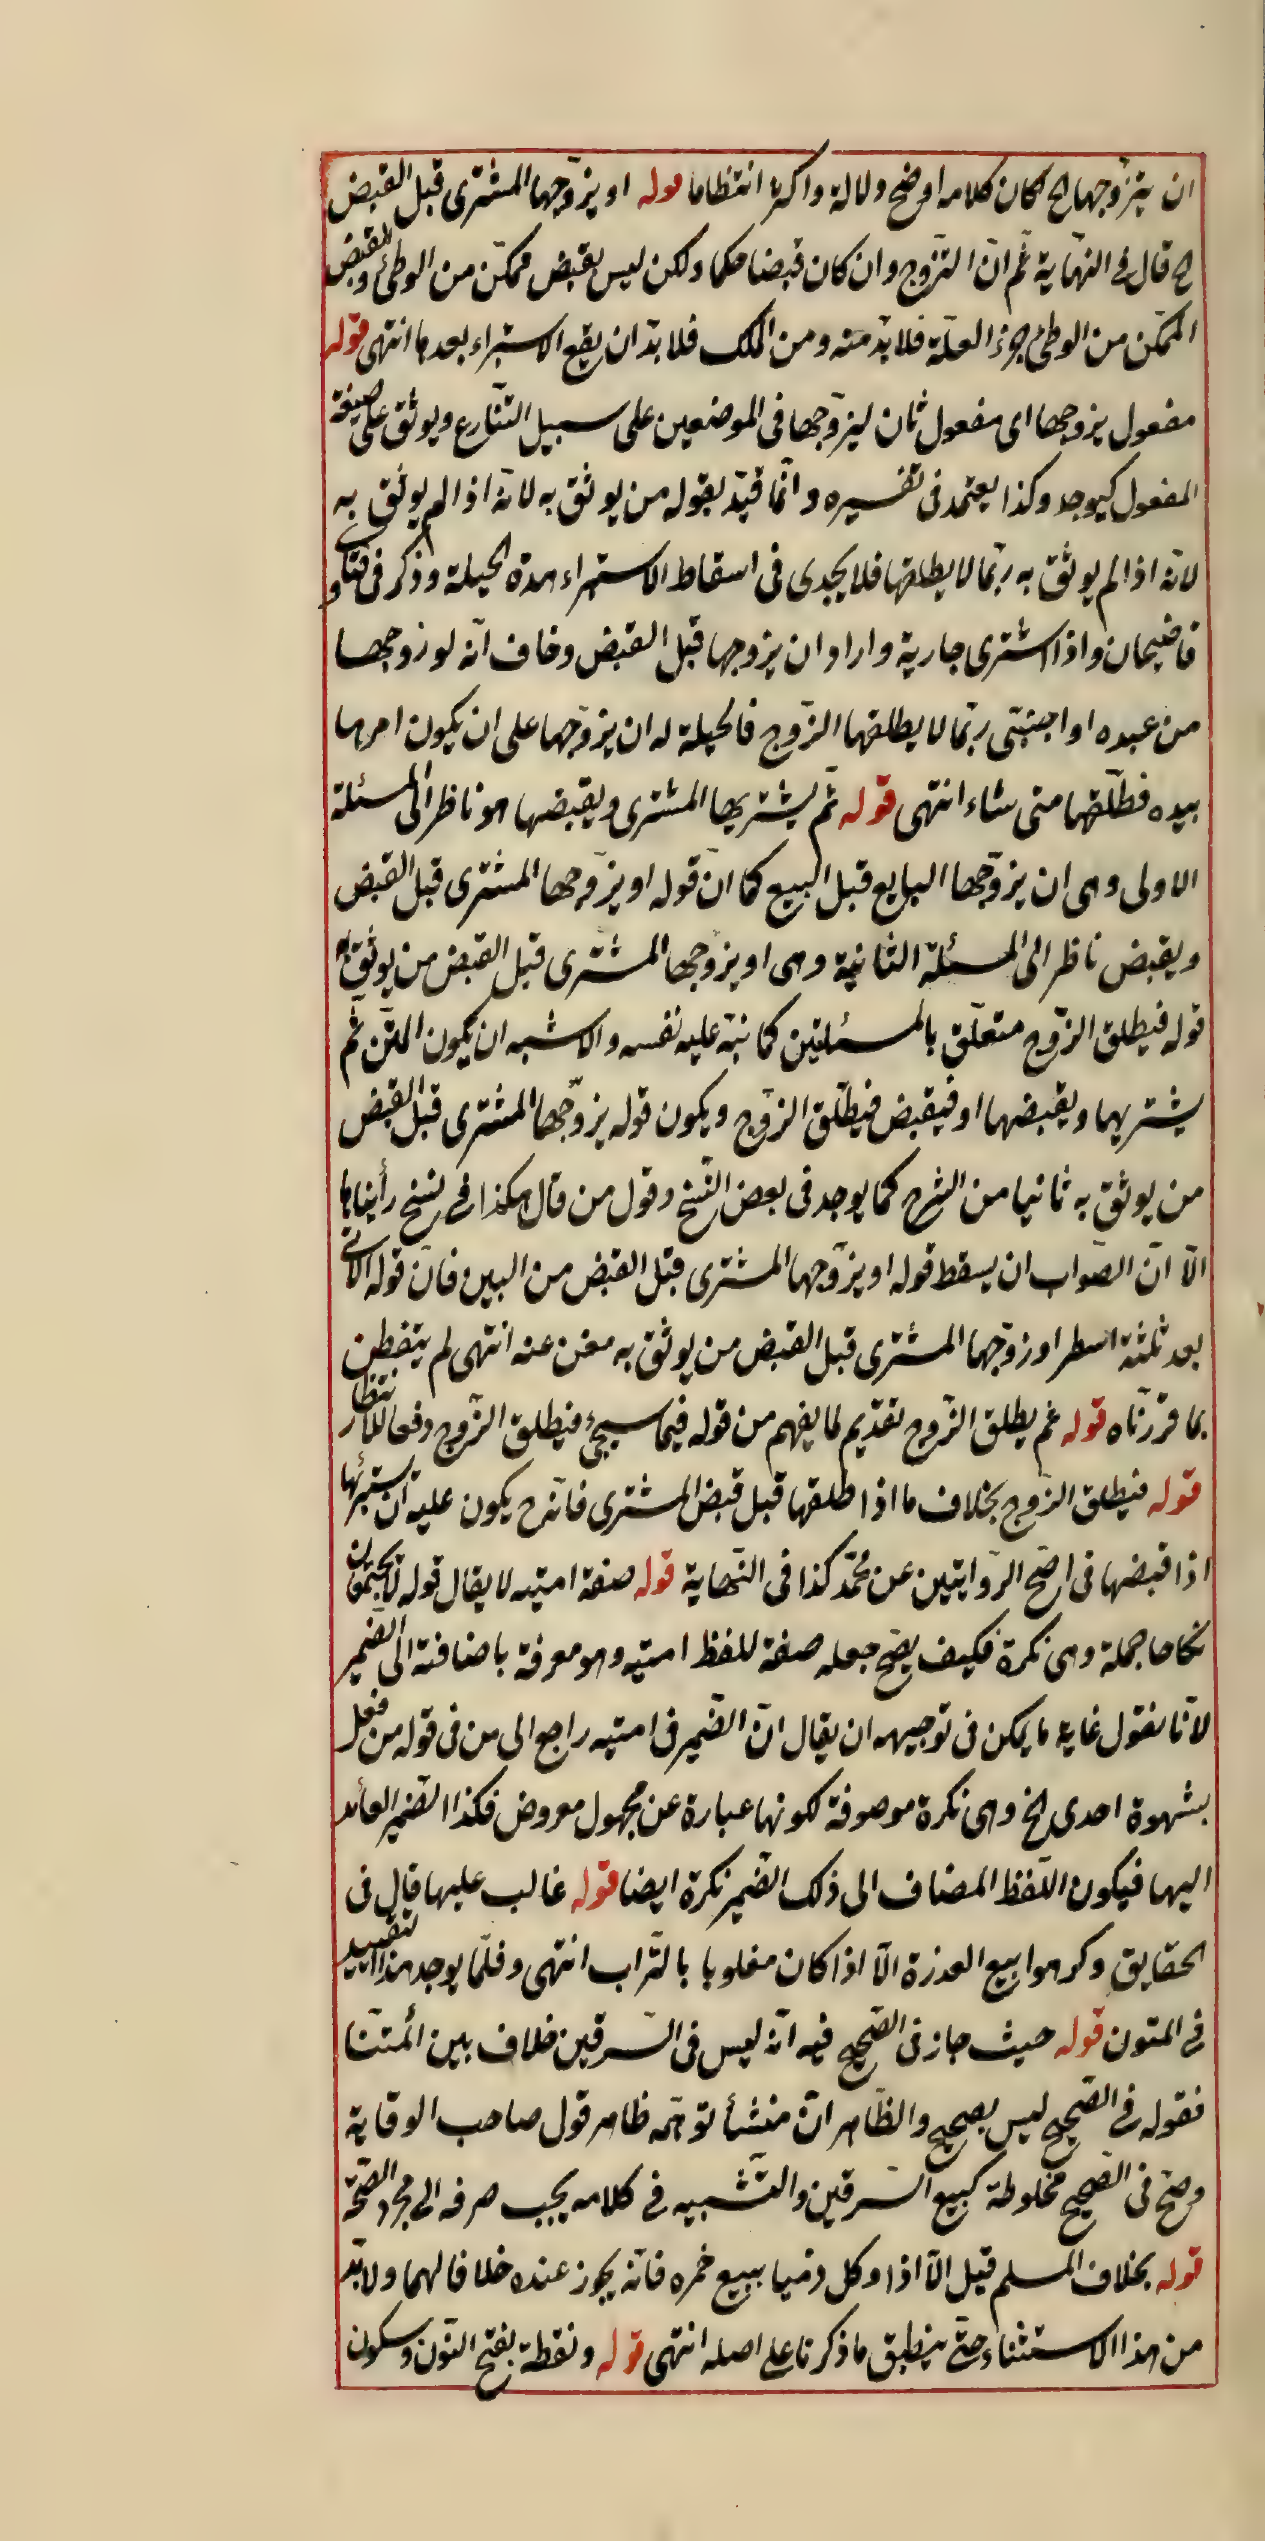 ان يتزوجها اه كان كلامه اوضح دلالة واكثر انتظاما قوله او يزوّجها المشترى قبل القبض
اه قال فى النهاية ثم انّ التزوج وان كان قبضا حكما ولكن ليس بقبض ممكّن من الوطئ والقبض
الممكّن من الوطئ جزء العلّة فلا بدّ منه ومن الملك فلا بدّ ان يقع الاستبراء بعدهما انتهى قوله
مفعول يزوجها اى مفعول ثان ليزوّجها فى الموضعين على سبيل التنازع ويوثق على صيغة
المفعول كيوجد وكذا يعتمد فى تفسيره وانّما قيّد بقوله من يوثق به لانّه اذا لم يوثق به
لانّه اذا لم يوثق به ربّما لا يطلقها فلا يجدى فى اسقاط الاستبراء هذه الحيلة وذكر فى فتاو
قاضيخان واذا اشترى جارية واراد ان يزوجها قبل القبض وخاف انّه لو زوجها
من عبده او اجنبىّ ربّما لا يطلقها الزّوج فالحيلة له ان يزوّجها على ان يكون امرها
بيده فطلّقها متى شاء انتهى قوله ثم يشتريها المشترى ويقبضها هو ناظر الى المسئلة
الاولى وهى ان يزوّجها البايع قبل البيع كما انّ قوله او يزوّجها المشترى قبل القبض
ويقبض ناظر الى المسئلة الثانية وهى او يزوجها المشترى قبل القبض من يوثق به
قوله فيطلق الزّوج متعلّق بالمسئلتين كما نبّه عليه نفسه والاشبه ان يكون المتن ثم
يشتريها ويقبضها او فيقبض فيطلّق الزّوج ويكون قوله يزوّجها المشترى قبل القبض
من يوثق به ثانيا من الشرح كما يوجد فى بعض النّسخ وقول من قال هكذا فى نسخ رأيناها
الّا انّ الصّواب ان يسقط قوله او يزوّجها المشترى قبل القبض من البين فانّ قوله الآتى
بعد ثلثة اسطر او زوّجها المشترى قبل القبض من يوثق به مغن عنه انتهى لم يتفطن
بما قرّرناه قوله ثم يطلق الزّوج تقديم لما يفهم من قوله فيما سيجئ فيطلق الزّوج دفعا للانتظار
قوله فيطلق الزّوج بخلاف ما اذا طلقها قبل قبض المشترى فانّه ح يكون عليه ان يستبرئها
اذا قبضها فى اصحّ الرّوايتين عن محمّد كذا فى النّهاية قوله صفة امتيه لا يقال قوله لا يجتمعان
نكاحا جملة وهى نكرة فكيف يصحّ جعله صفة للفظ امتيه وهو معرفة باضافته الى الضّمير
لانّا نقول غاية ما يمكن فى توجيهه ان يقال انّ الضّمير فى امتيه راجع الى من فى قوله من فعل
بشهوة احدى الخ وهى نكرة موصوفة لكونها عبارة عن مجهول مفروض فكذا الضّمير العائد
اليها فيكون اللّفظ المضاف الى ذلك الضّمير نكرة ايضا قوله غالب عليها قال فى
الحقايق وكرهوا بيع العذرة الّا اذا كان مغلوبا بالتّراب انتهى وقلّما يوجد هذا التقييد
فى المتون قوله حيث جاز فى الصّحيح فيه انّه ليس فى السّرقين خلاف بين ائمّتنا
فقوله فى الصّحيح ليس بصحيح والظّاهر انّ منشأ توهّمه ظاهر قول صاحب الوقاية
وصحّ فى الصّحيح مخلوطة كبيع السّرقين والتّشبيه فى كلامه يجب صرفه الى مجرد الصّحّة
قوله بخلاف المسلم قيل الّا اذا وكل ذمّيا ببيع خمره فانّه يجوز عنده خلافا لهما ولا بدّ
من هذا الاستثناء حتّى ينطبق ما ذكرنا على اصله انتهى قوله ونقطة بفتح النّون وسكون